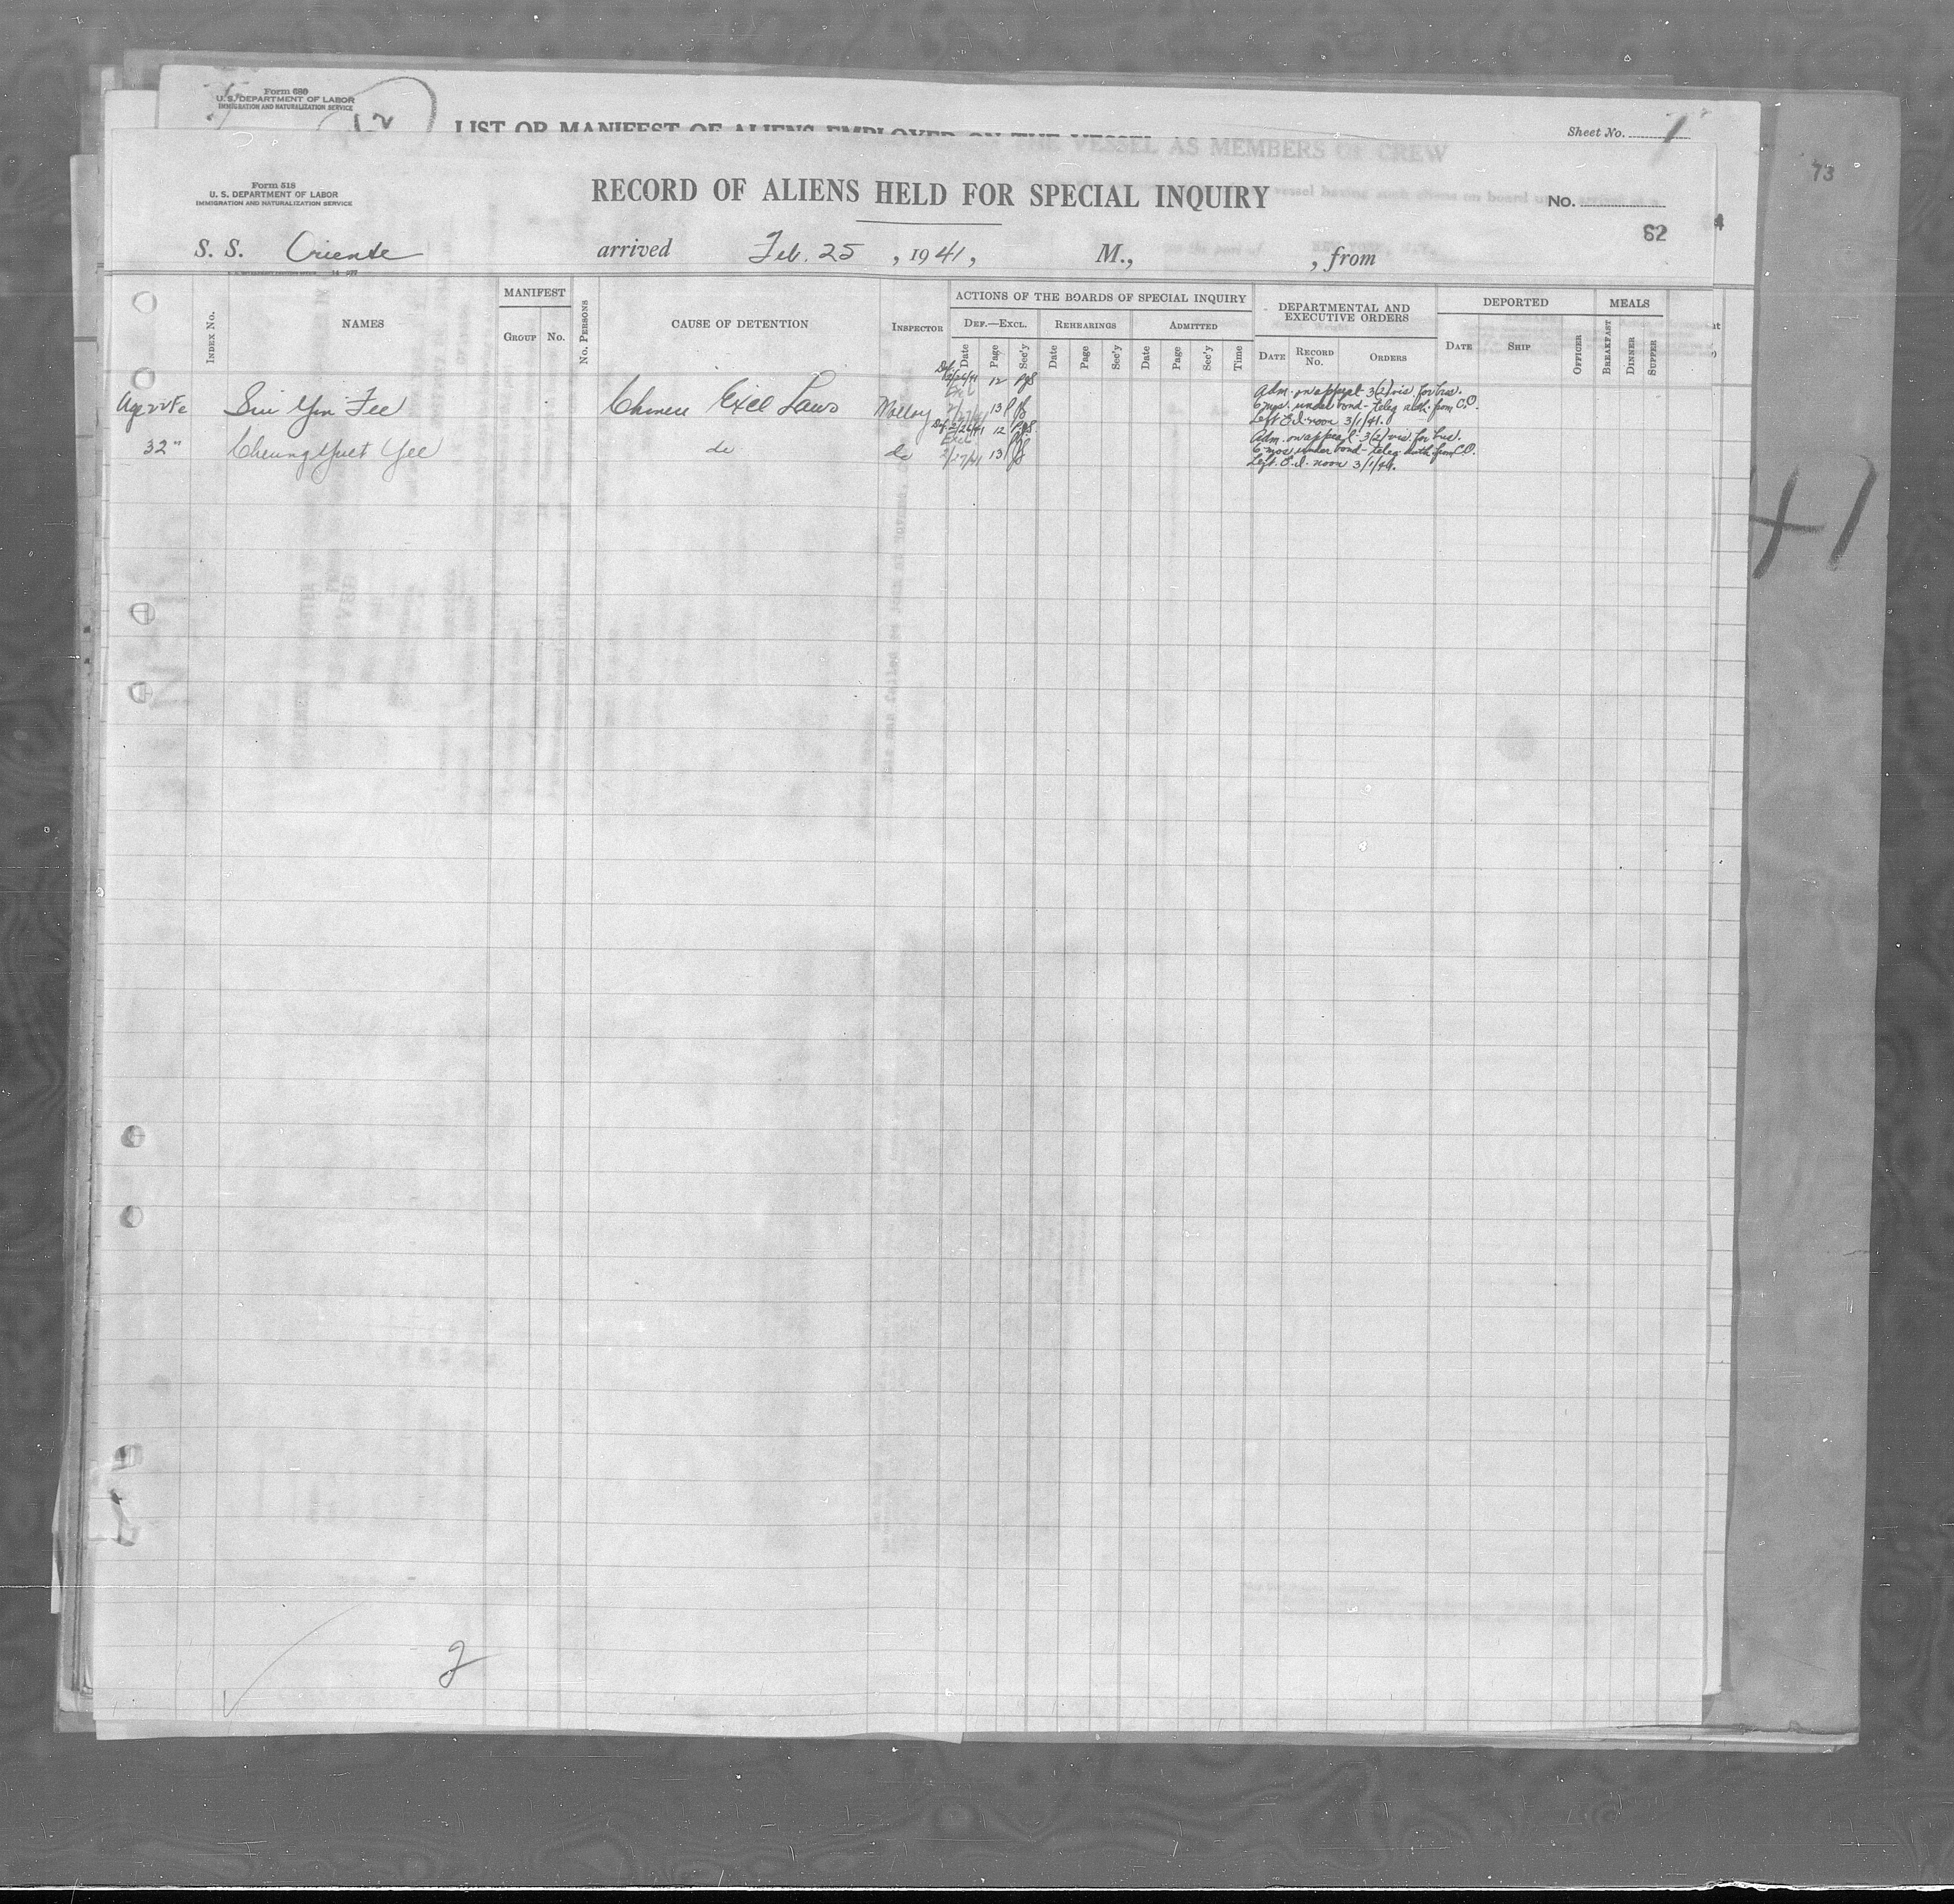 Form 680
U. S. DEPARTMENT OF LABOR
IMMIGRATION AND NATURALIZATION SERVICE
LIST OR MANIFEST OF ALIENS EMPLOYED ON THE VESSEL AS MEMBERS OF CREW
Sheet No. 1
73
Form 518
U. S. DEPARTMENT OF LABOR
IMMIGRATION AND NATURALIZATION SERVICE
RECORD OF ALIENS HELD FOR SPECIAL INQUIRY
No.
62
S. S. Oriente arrived Feb. 25, 1941, M., , from
INDEX No.
NAMES
MANIFEST
GROUP No.
No. PERSONS
CAUSE OF DETENTION
INSPECTOR
ACTIONS OF THE BOARDS OF SPECIAL INQUIRY
DEF.—EXCL. REHEARINGS ADMITTED
Date Page Sec'y Date Page Sec'y Date Page Sec'y Time
DEPARTMENTAL AND EXECUTIVE ORDERS
DATE RECORD No. ORDERS
DEPORTED
DATE SHIP OFFICER
MEALS
BREAKFAST DINNER SUPPER
Sui Yin Fee Chinese Excl Laws Molloy
Def. 2/26/41 12
Excl 2/27/41 13
Adm. on appeal 3(2) vis. for bus.
6 mos. under bond - teleg. auth. from C.O.
Left E.I. noon 3/1/41.
32 " Cheung Yuet Yee do do
Def. 2/26/41 12
Excl. 2/27/41 13
Adm. on appeal 3(2) vis. for bus.
6 mos under bond - teleg. auth. from C.O.
Left E.I. noon 3/1/41.
41
2